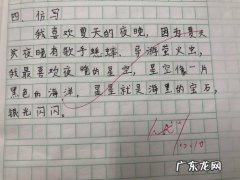 四、仿写
我喜欢夏天的夜晚，因为夏天
夜晚有歌手蟋蟀，导游萤火虫，
我最喜欢夜晚的星空，星空像一片
黑色的海洋，星星就是海里的宝石，
银光闪闪。
10.10
广东龙网